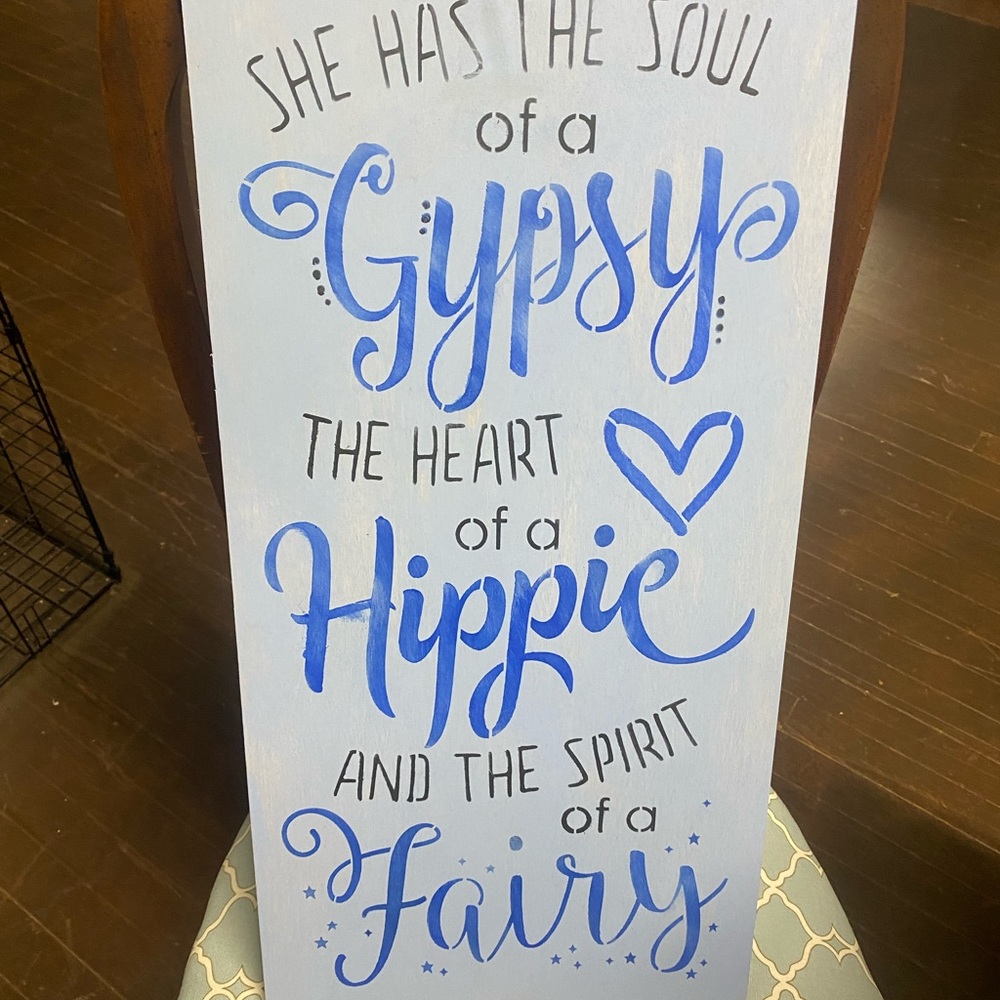 SHE HAS THE SOUL
of a
Gypsy
THE HEART
of a
Hippie
AND THE SPIRIT
of a
Fairy